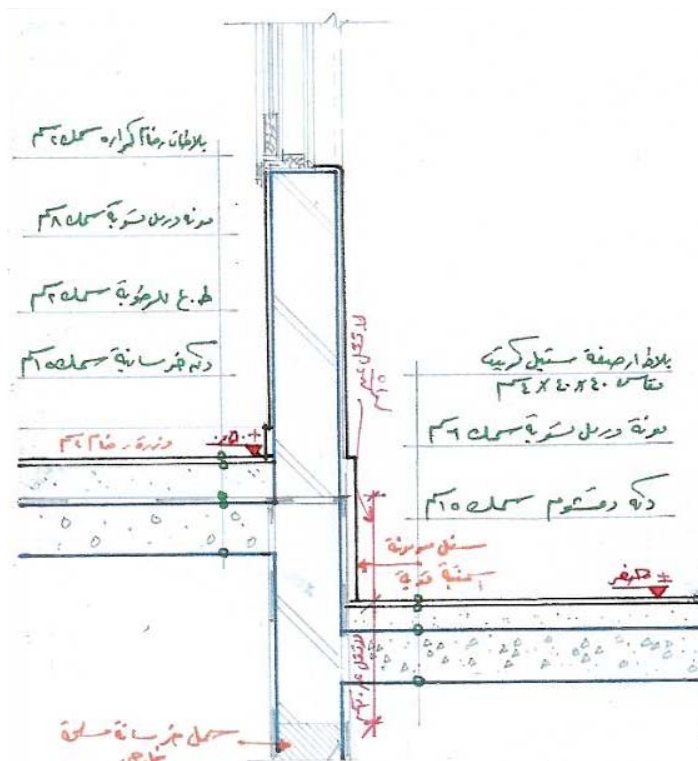 بلاطات رخام كراره سمك ٢سم
مونة ورمل تسوية سمك ٨سم
ط.ع للرطوبة سمك ٢سم
دكة خرسانية سمك ١٥سم
وزرة رخام ٢سم
+٠,٥٠
بلاط ارصفة ستيل كريت
مقاس ٤٠ × ٤٠ × ٤سم
مونة ورمل تسوية سمك ٦سم
دكة دقشوم سمك ١٥سم
± صفر
سفل مونة
اسمنتية قوية
لا تقل عن
لا تقل عن
حمل خرسانة مسلحة
خارجى